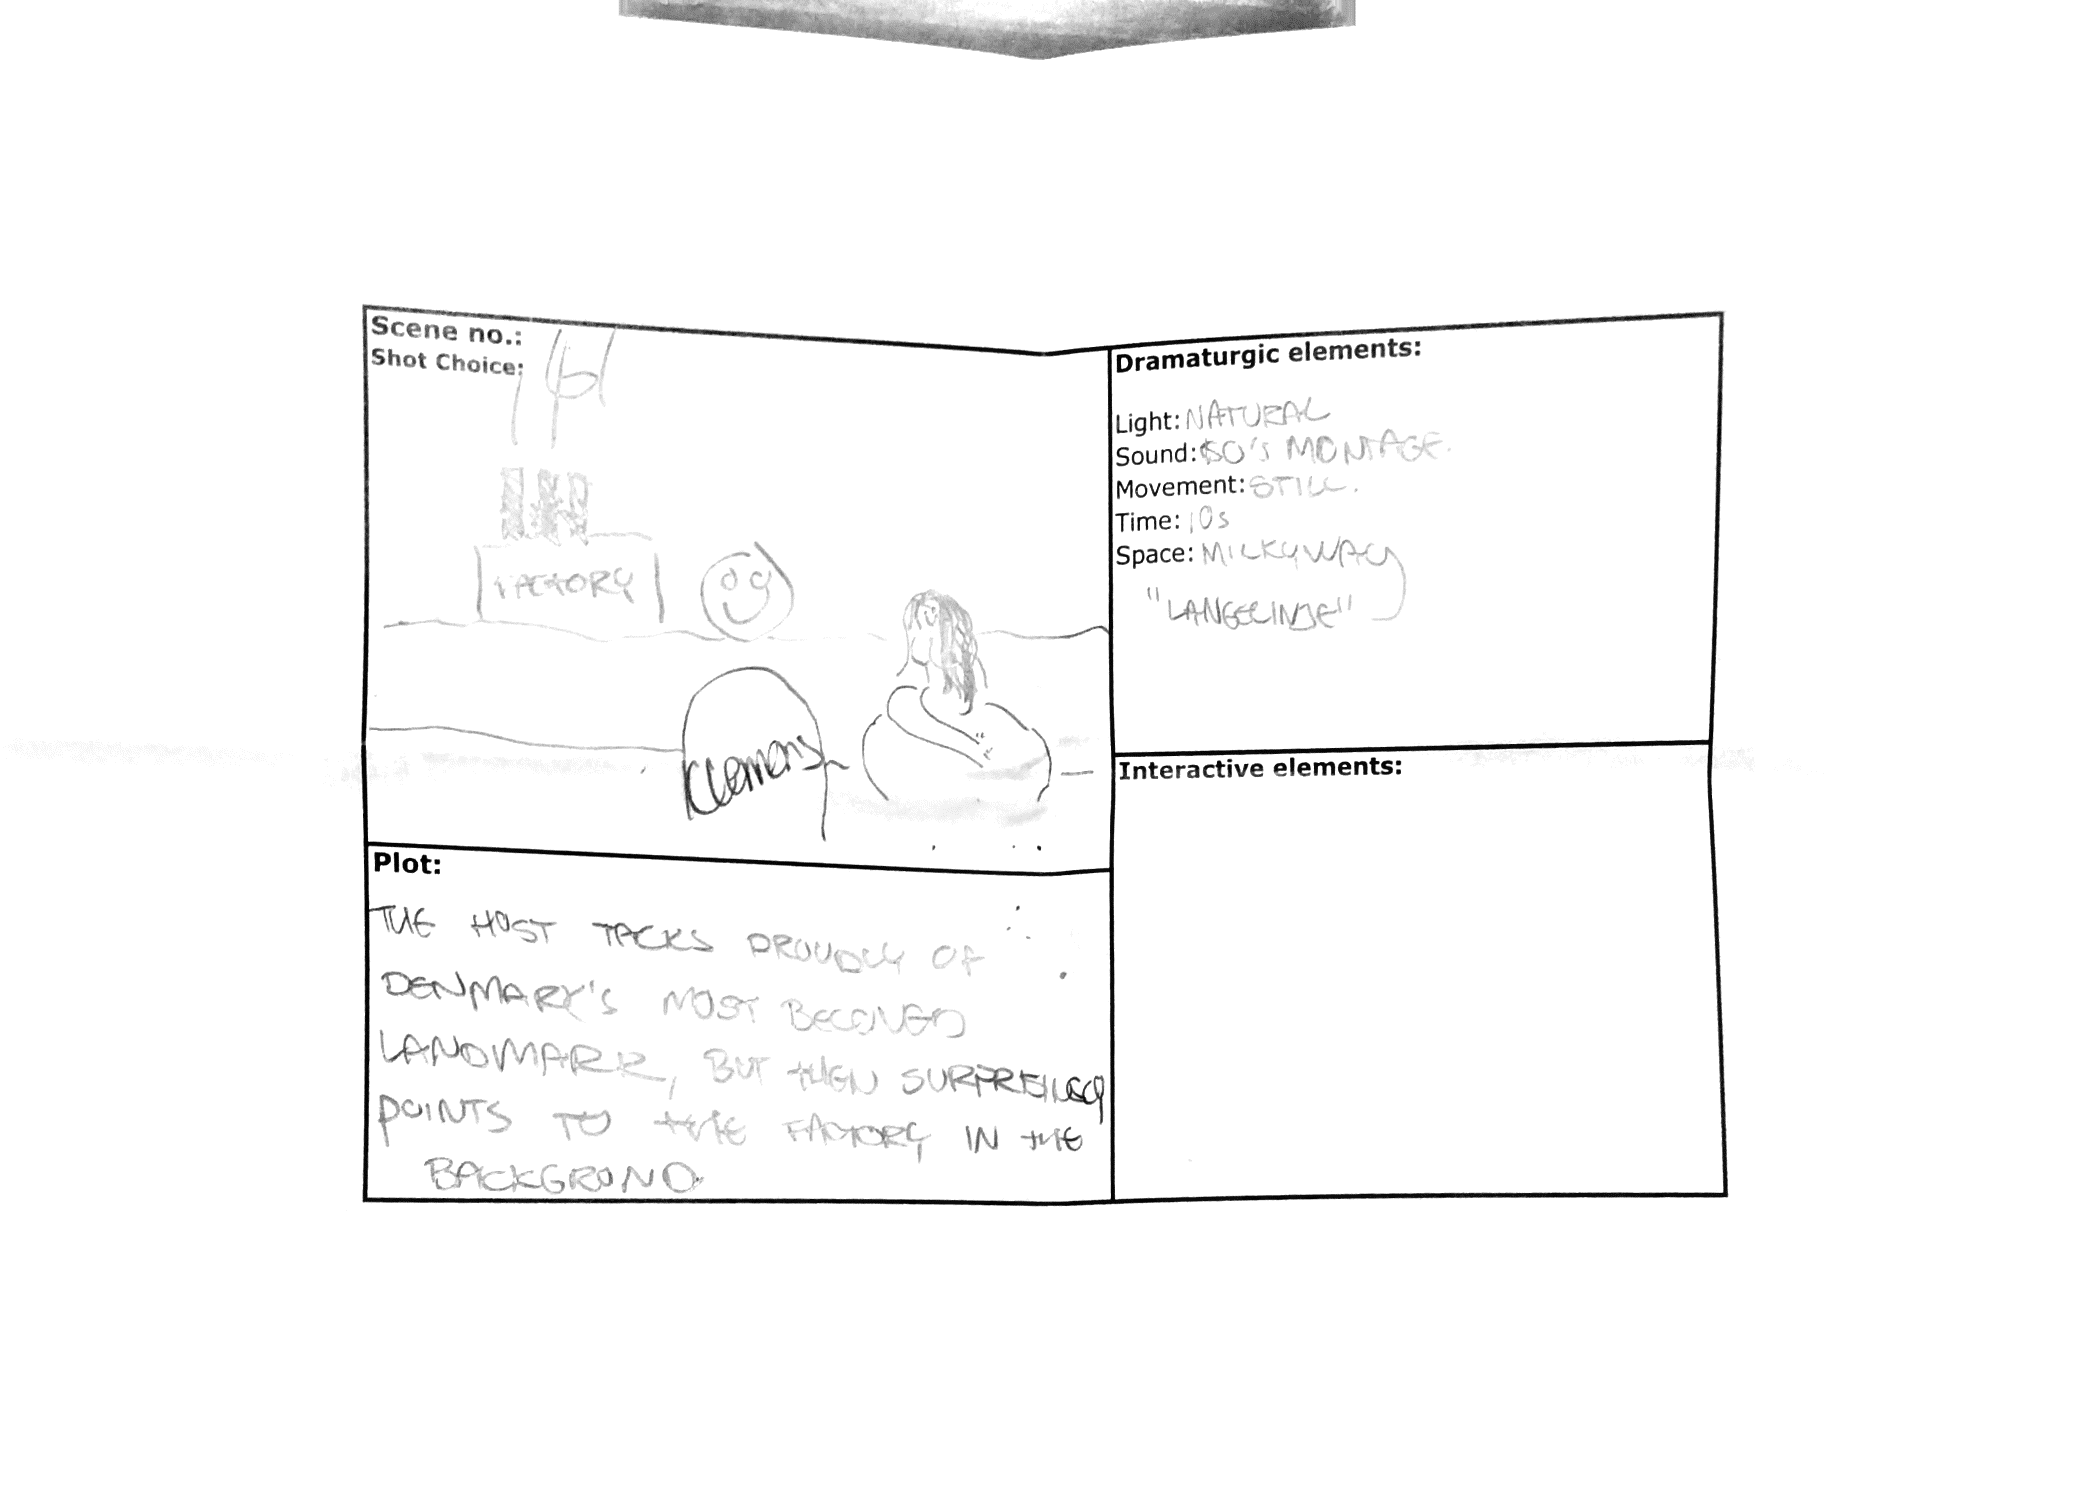 Scene no.:
Shot Choice:
FACTORY
Klemens
Plot:
THE HOST TALKS PROUDLY OF
DENMARK'S MOST BELOVED
LANDMARK, BUT THEN SURPRISINGLY
POINTS TO THE FACTORY IN THE
BACKGROUND.
Dramaturgic elements:
Light: NATURAL
Sound: 80's MONTAGE.
Movement: STILL.
Time: 10s
Space: MILKYWAY
"LANGELINJE"
Interactive elements: